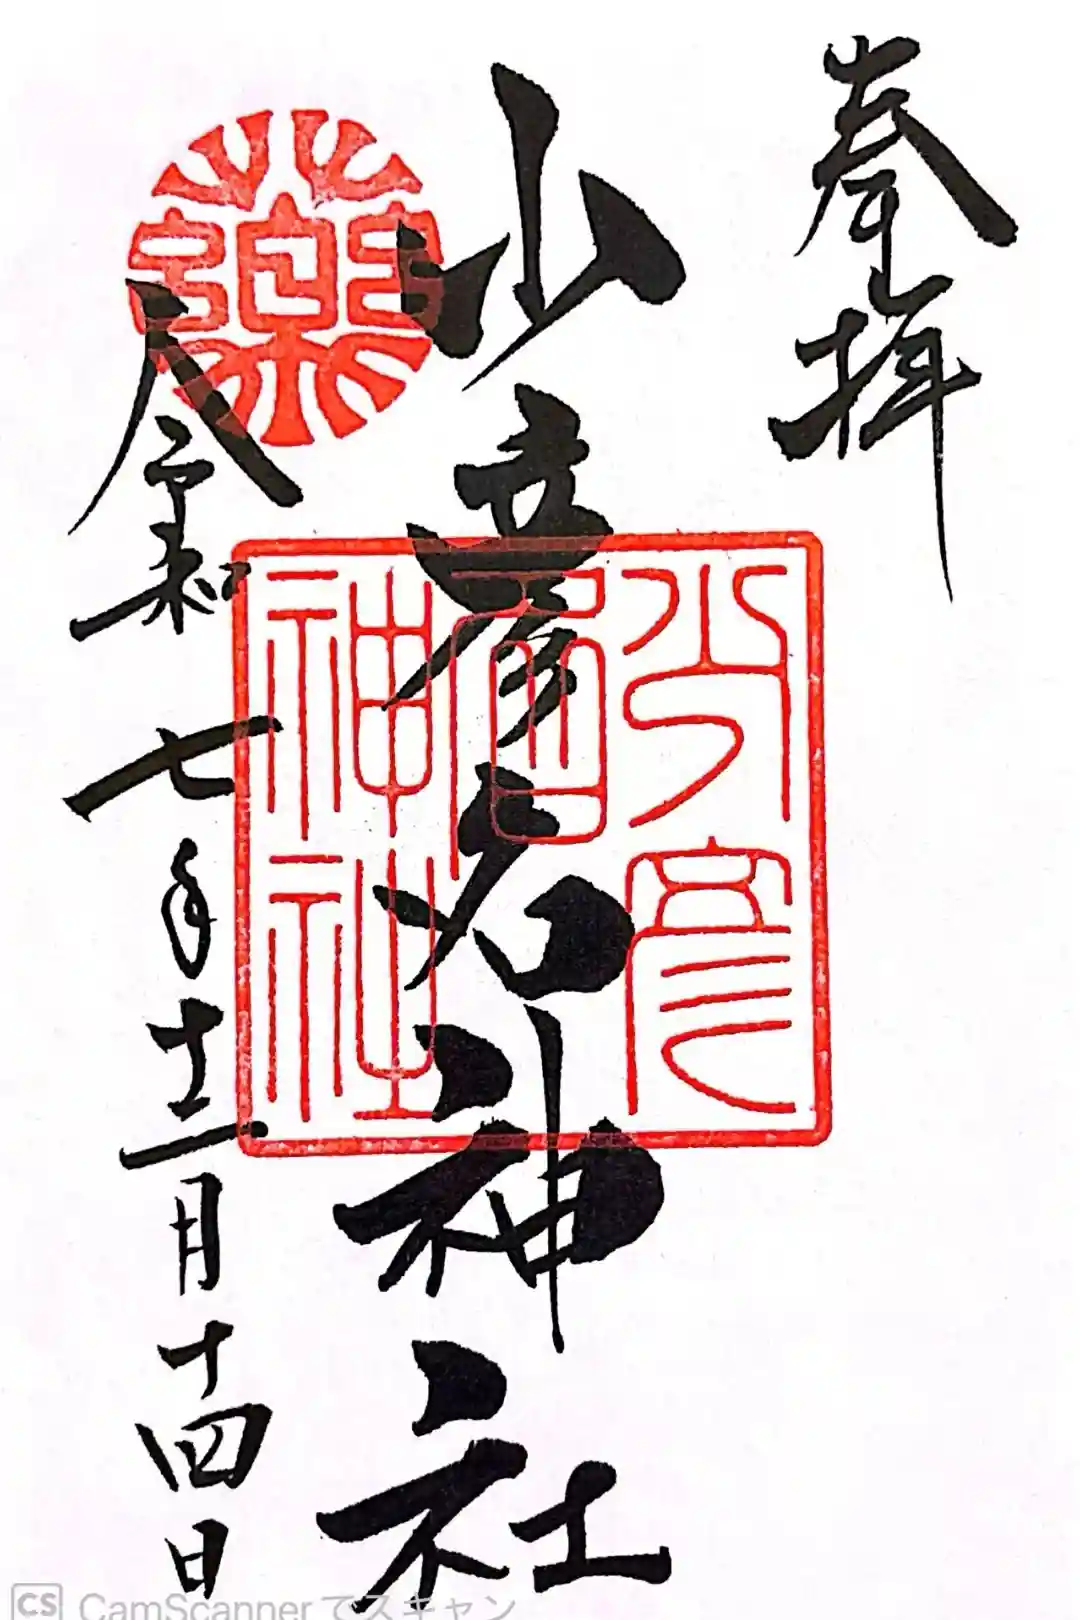 奉拝
少彦名神社
藥
少彦名神社
令和七年十二月十四日
CS CamScannerでスキャン